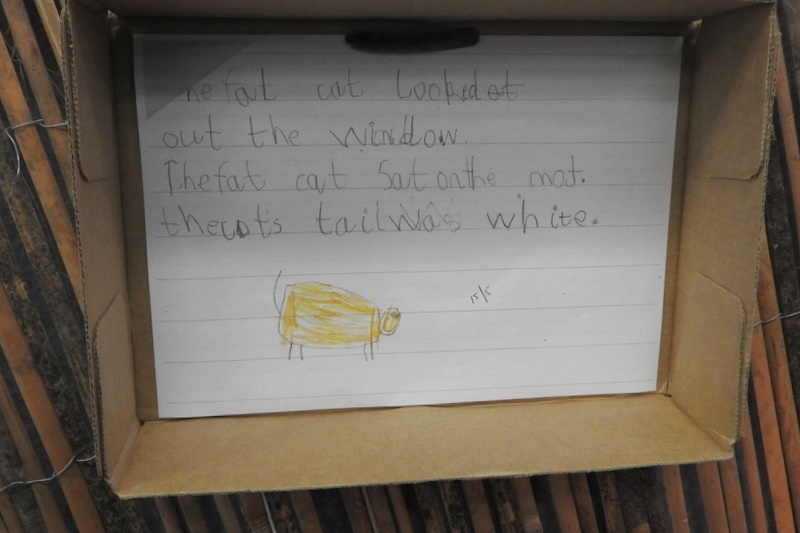 The fat cat looked at
out the window.
The fat cat sat on the mat.
the cat's tail was white.
15/5